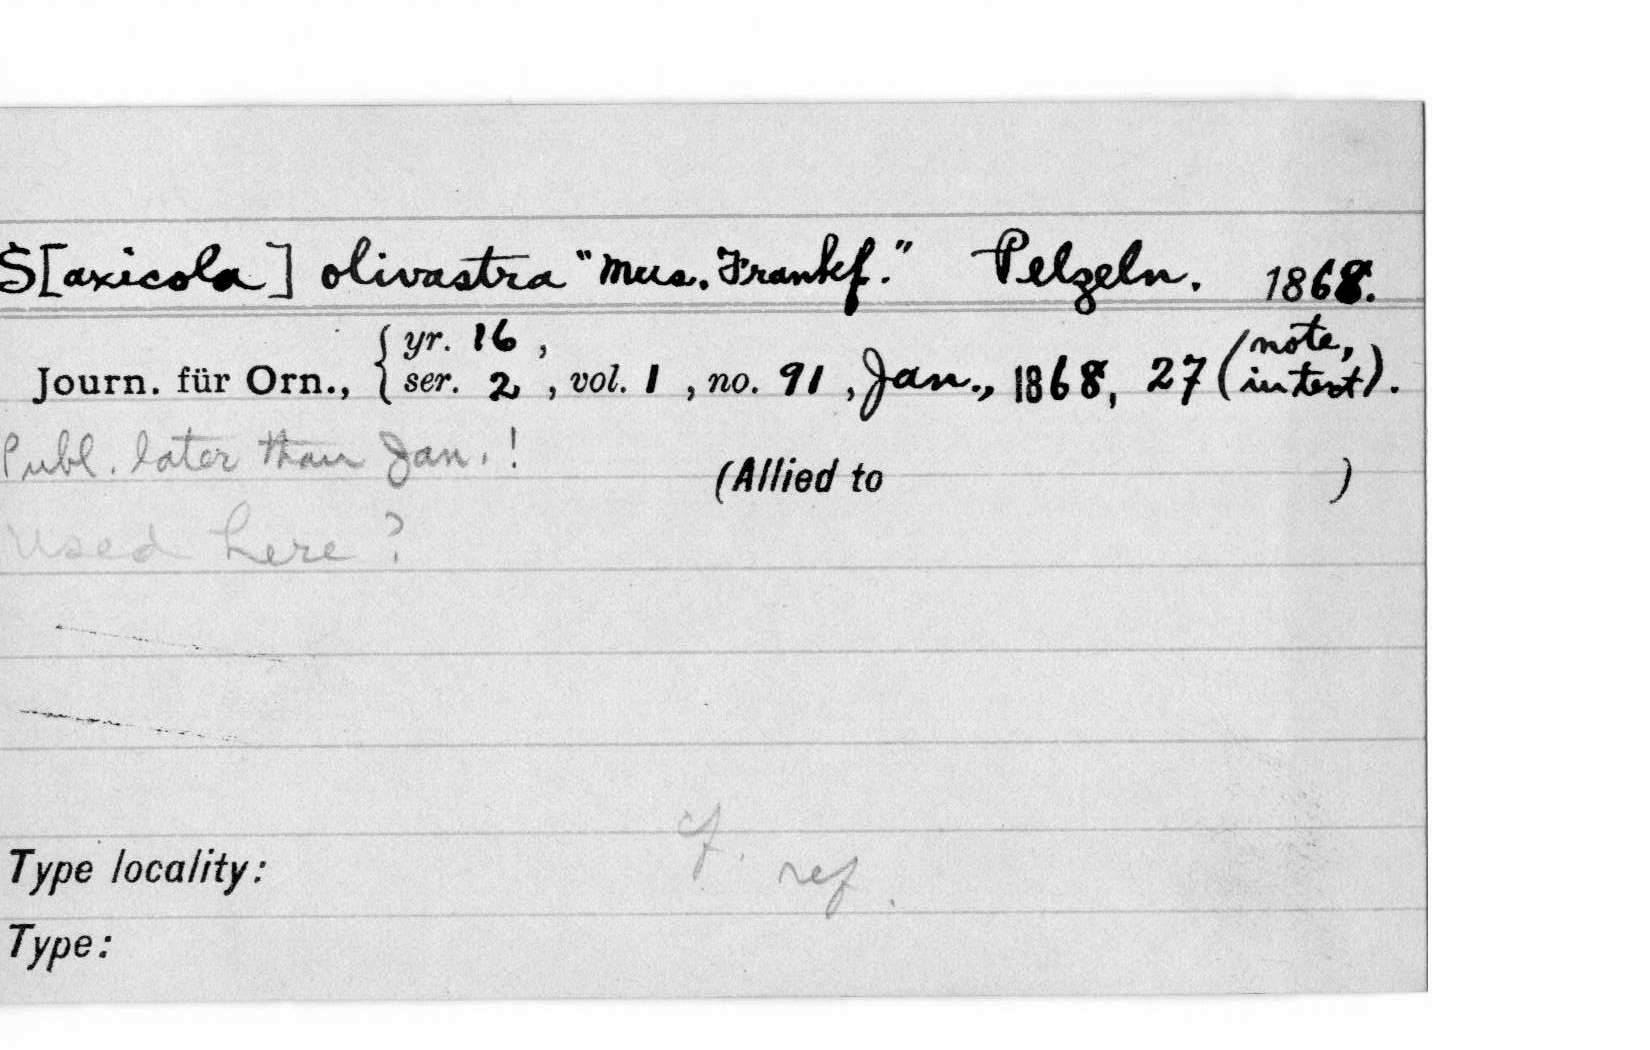 S[axicola] olivastra "Mus. Frankf." Pelzeln. 1868.
Journ. für Orn., { yr. 16 , ser. 2 , vol. 1 , no. 91 , Jan., 1868, 27 (note, in text).
Publ. later than Jan. !
(Allied to )
Used here ?
cf. ref.
Type locality:
Type: